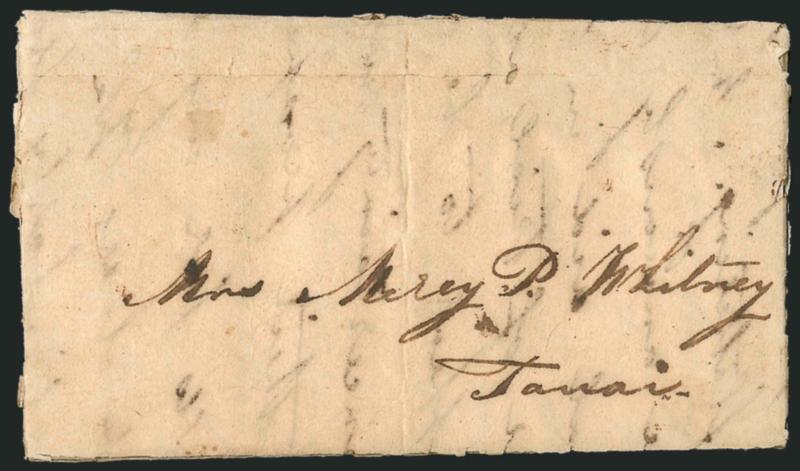 Mrs Mercy P. Whitney
Tauai.